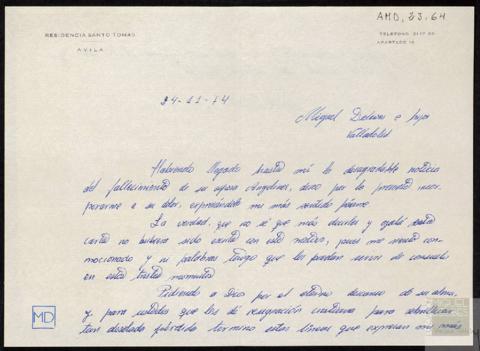 AMD, 33.64
RESIDENCIA SANTO TOMAS
AVILA
TELEFONO 21 17 00
APARTADO 10
24-11-74
Miguel Delibes e hijos
Valladolid
Habiendo llegado hasta mí la desagradable noticia
del fallecimiento de su esposa Angelines, deseo por la presente incor
porarme a su dolor, expresándole mi más sentido pésame.
La verdad, que no sé que más decirles y ojalá esta
carta no hubiera sido escrita con este motivo, pues me siento con-
mocionado y ni palabras tengo que les puedan servir de consuelo
en estos tristes momentos
Pidiendo a Dios por el eterno descanso de su alma,
y para ustedes que les dé resignación cristiana para sobrellevar
tan dolorosa pérdida termino estas líneas que expresan mi más
MD